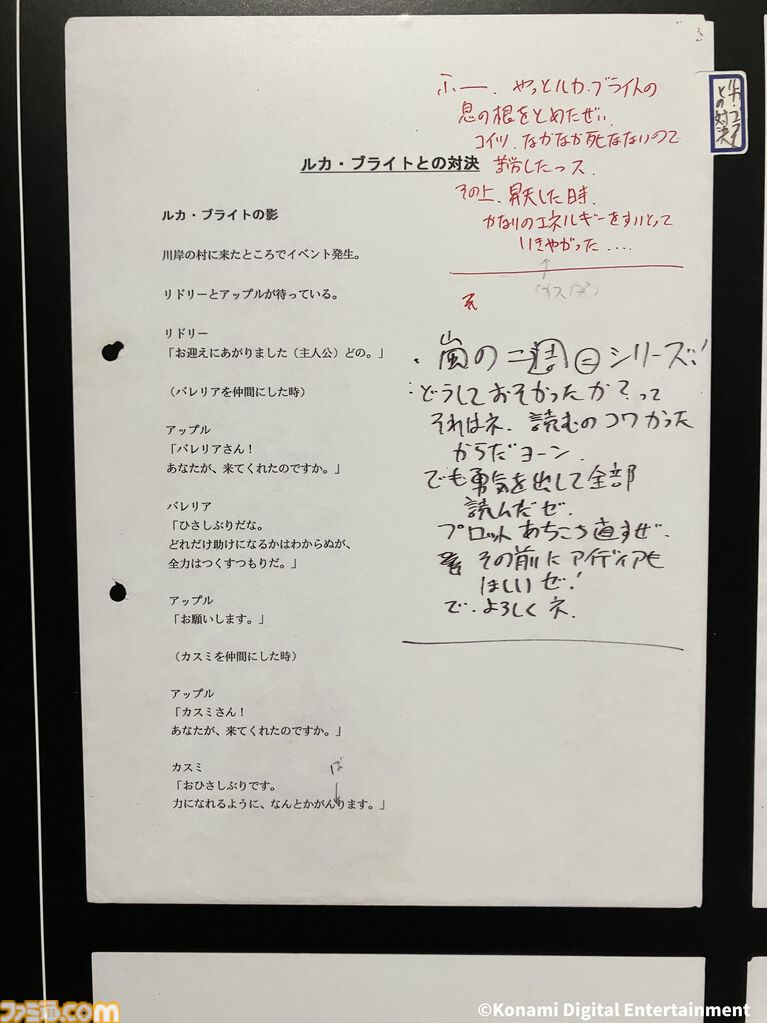 フー、やっとルカ・ブライトの
息の根をとめたぜい
コイツ、なかなか死なないので
苦労したっス
その上、昇天した時、
かなりのエネルギーをすいとって
いきやがった....
ルカ・ブライ
との対決
ルカ・ブライトとの対決
ルカ・ブライトの影
川岸の村に来たところでイベント発生。
リドリーとアップルが待っている。
リドリー
「お迎えにあがりました（主人公）どの。」
（バレリアを仲間にした時）
アップル
「バレリアさん！
あなたが、来てくれたのですか。」
バレリア
「ひさしぶりだな。
どれだけ助けになるかはわからぬが、
全力はつくすつもりだ。」
アップル
「お願いします。」
（カスミを仲間にした時）
アップル
「カスミさん！
あなたが、来てくれたのですか。」
カスミ
「おひさしぶりです。
ば
力になれるように、なんとかがんります。」
嵐の二週シリーズ!
どうしておそかったか？って
それはネ、読むのコワかった
からだヨーン、
でも勇気を出して全部
読んだゼ、
プロットあちこち直すぜ、
その前にアイディアも
ほしいぜ！
で、よろしくネ、
ファミ通.com
©Konami Digital Entertainment